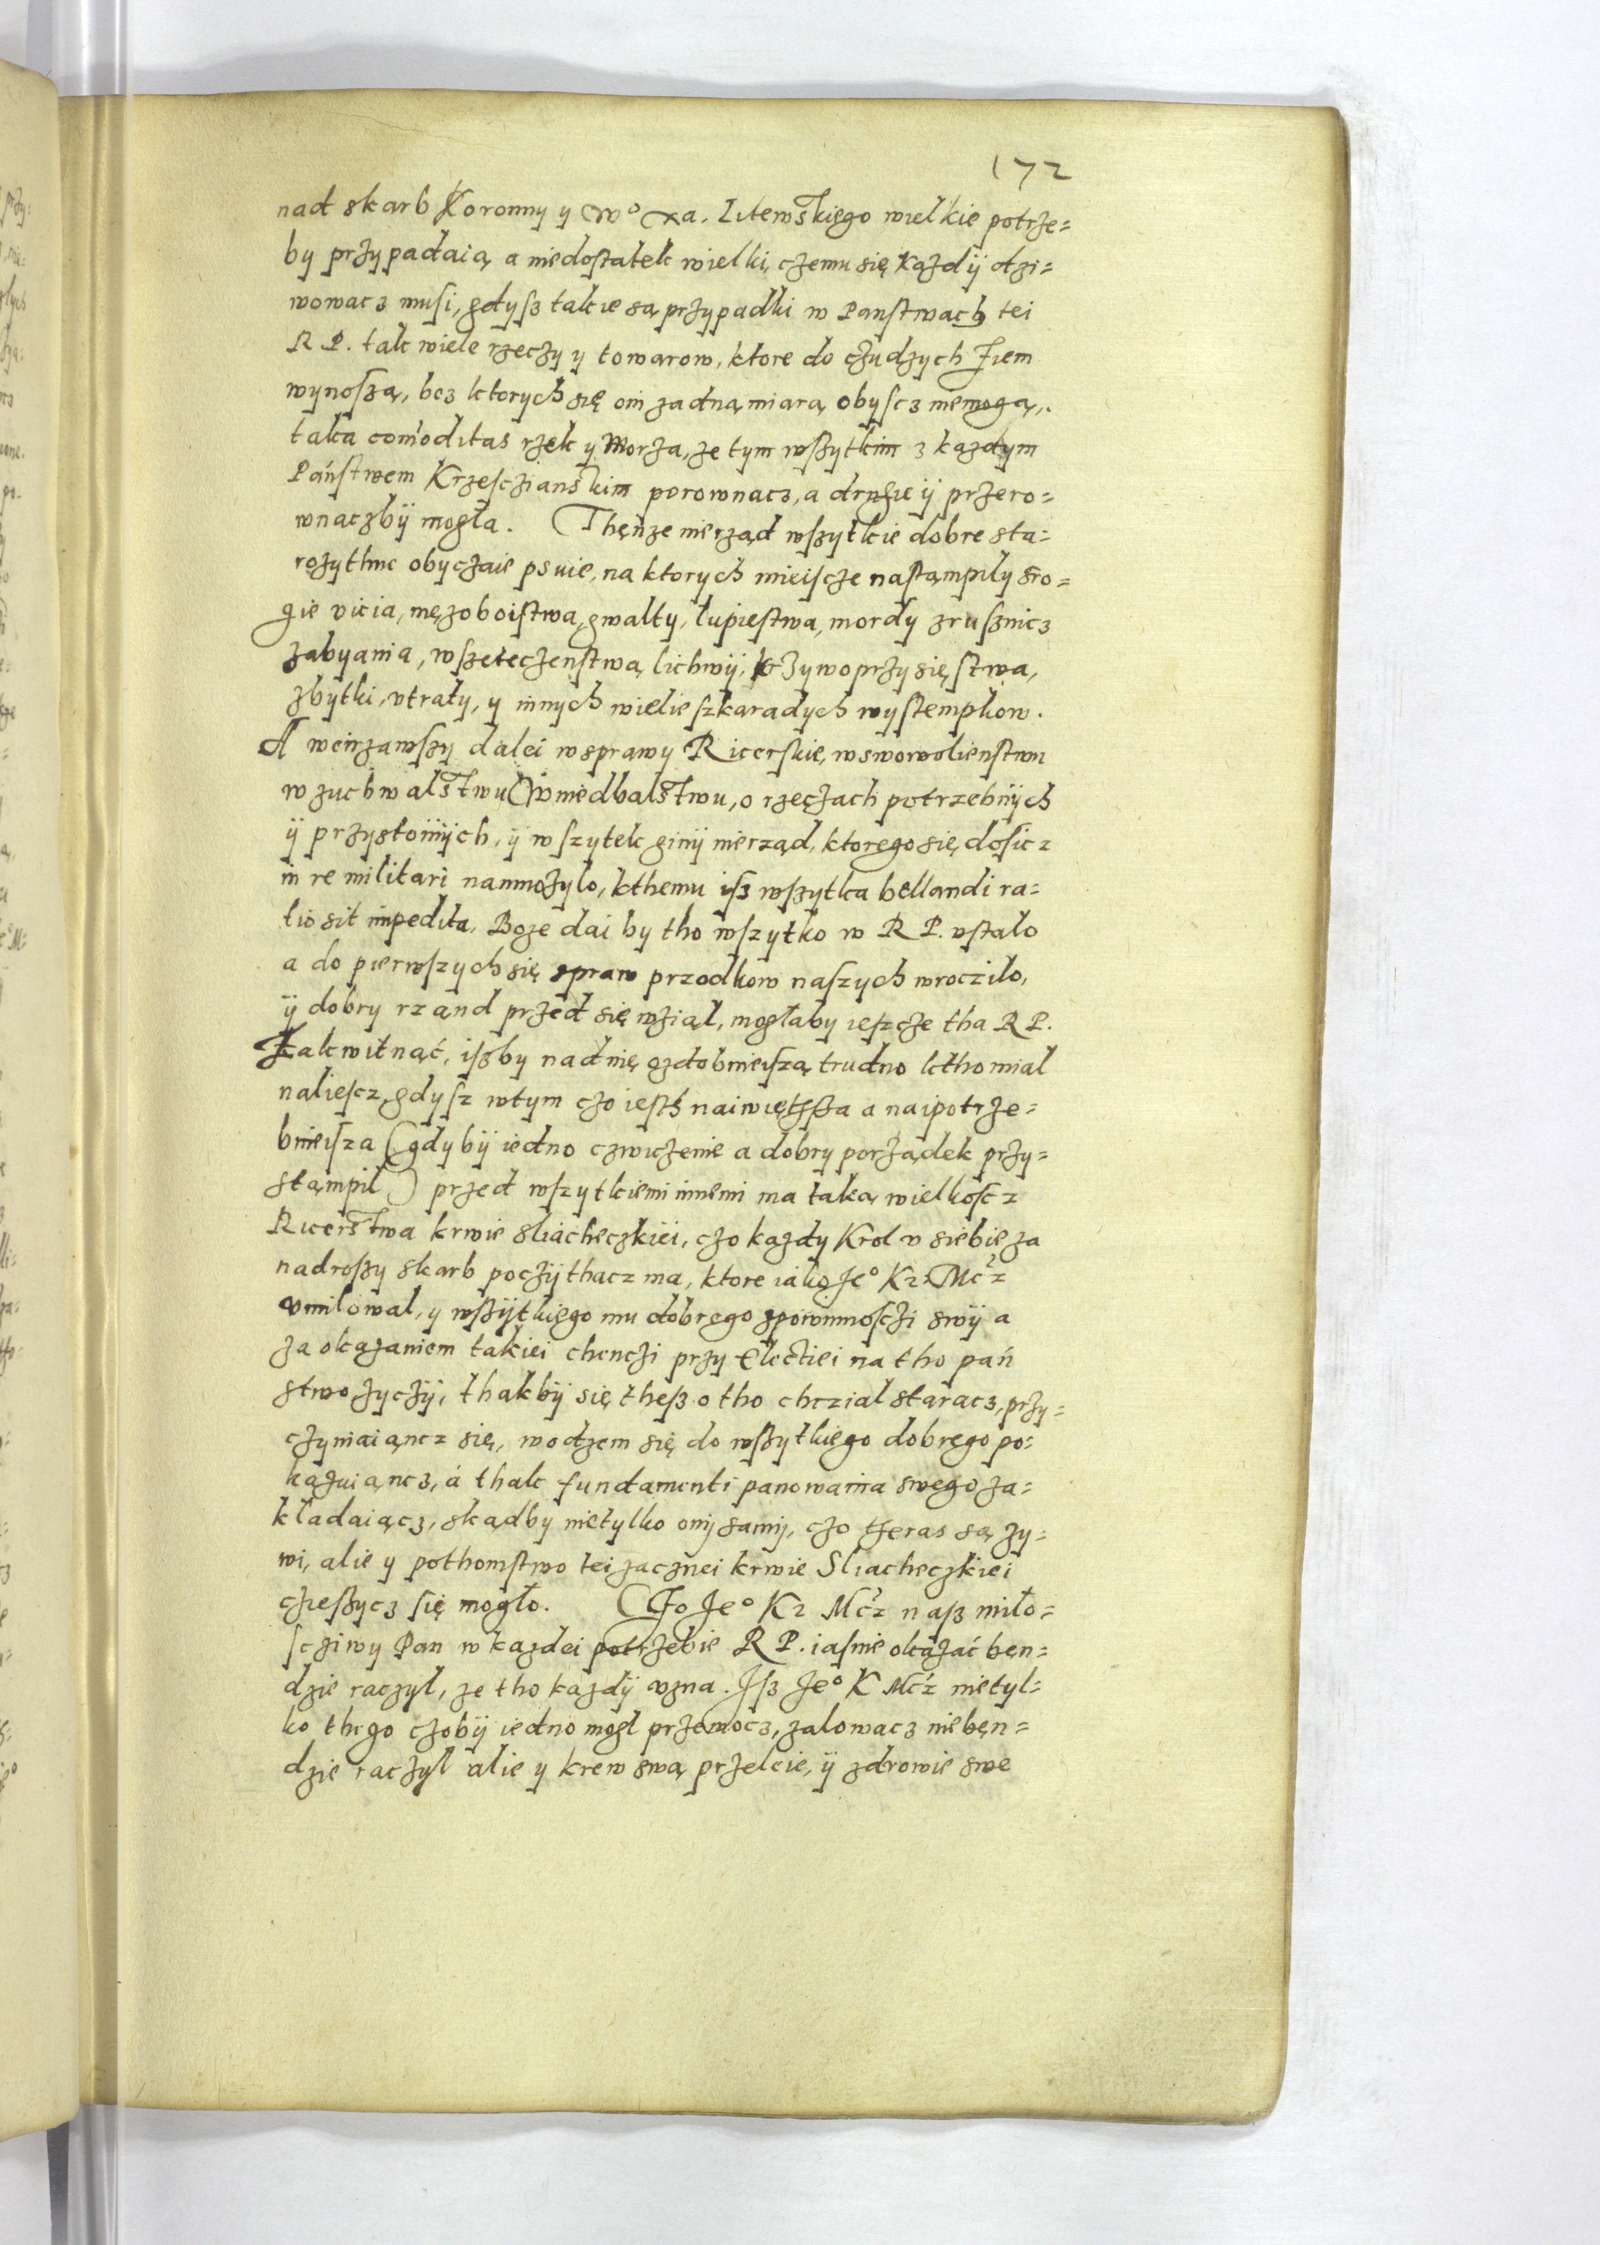 172
nad skarb Koronny y Wº Xa. Litewskiego wielkie potrze=
by przypadaią a niedostatek wielki, czemu się każdÿ dzi=
wowacz musi, gdysz takie są przypadki w Panstwach tei
R P. tak wiele rzeczy y towarow, ktore do cżudzych Ziem
wynoszą, bez ktorych się oni żadną miarą obyscz niemogą,.
taka com̃oditas rzek y Morza, że tym wszytkim z każdym
Państwem Krzescziańskim porownacz, a drugie ÿ przero=
wnaczbÿ mogła. Thęnże nierząd wszytkie dobre sta=
rożythne obyczaie psuie, na ktorych mieiscze nastąmpiły sro=
gie vicia, mężoboistwa, gwalty, łupiestwa, mordy z rusznicz
zabyania, wszeteczeństwa, lichwÿ, krzywoprzysięstwa,
zbytki, utraty, y innych wielie szkaradych wystempkow.
A weirzawszy dalei w sprawy Ricerskie, w swowolienstwu
w zuchwalstwu, w niedbalstwu, o rzęczach potrzebnÿch
ÿ przystoinÿch, ÿ wszytek ginÿ nierząd, ktorego się dosicz
in re militari namnożylo, kthemu isz wszytka bellandi ra=
tio sit impedita. Boże dai by tho wszytko w R P. ustalo
a do pierwszych się spraw przodkow naszych wrocziło,
ÿ dobry rzand przed się wziąl, mogłaby ieszcze tha R P.
Zakwitnąć, iszby nad nię ozdobnieiszą trudno ktho miał
naliescz, gdysz w tym czo iesth naiwiętsza a naipotrze=
bnieisza (gdybÿ iedno czwiczenie a dobry porządek przy=
stąmpil) przed wszytkiemi innemi ma taką wielkoscz
Ricerstwa krwie sliacheczkiei, czo każdy Krol u siebie za
nadroszy skarb poczÿthacz ma, ktore iako Jeº Kr Mcz
umilowal, y wszÿtkiego mu dobrego z powinnosczi swÿ a
za okazaniem takiei chenczi przy Electiei na tho pań
stwo życzÿ, thakbÿ się thesz o tho chczial staracz, przy=
czyniaiąncz się, wodzem się do wszytkiego dobrego po=
kazuiąncz, á thak fundamenti panowania swego za=
kładaiącz, skądby nietylko onÿ samÿ, czo theras są ży=
wi, alie y pothomstwo tei zacznei krwie Sliacheczkiei
cziesycz się mogło. Czo Jeº Kr Mcz nasz miło=
scziwy Pan w każdei potrzebie R P. iasnie okazać ben=
dzie raczył, że tho każdÿ uzna. Isz Jeº K Mcz nietyl=
ko thego czobÿ iedno mogl przemocz, żalowacz niebęn=
dzie raczyl alie y krew swą przelcie, ÿ zdrowie swe